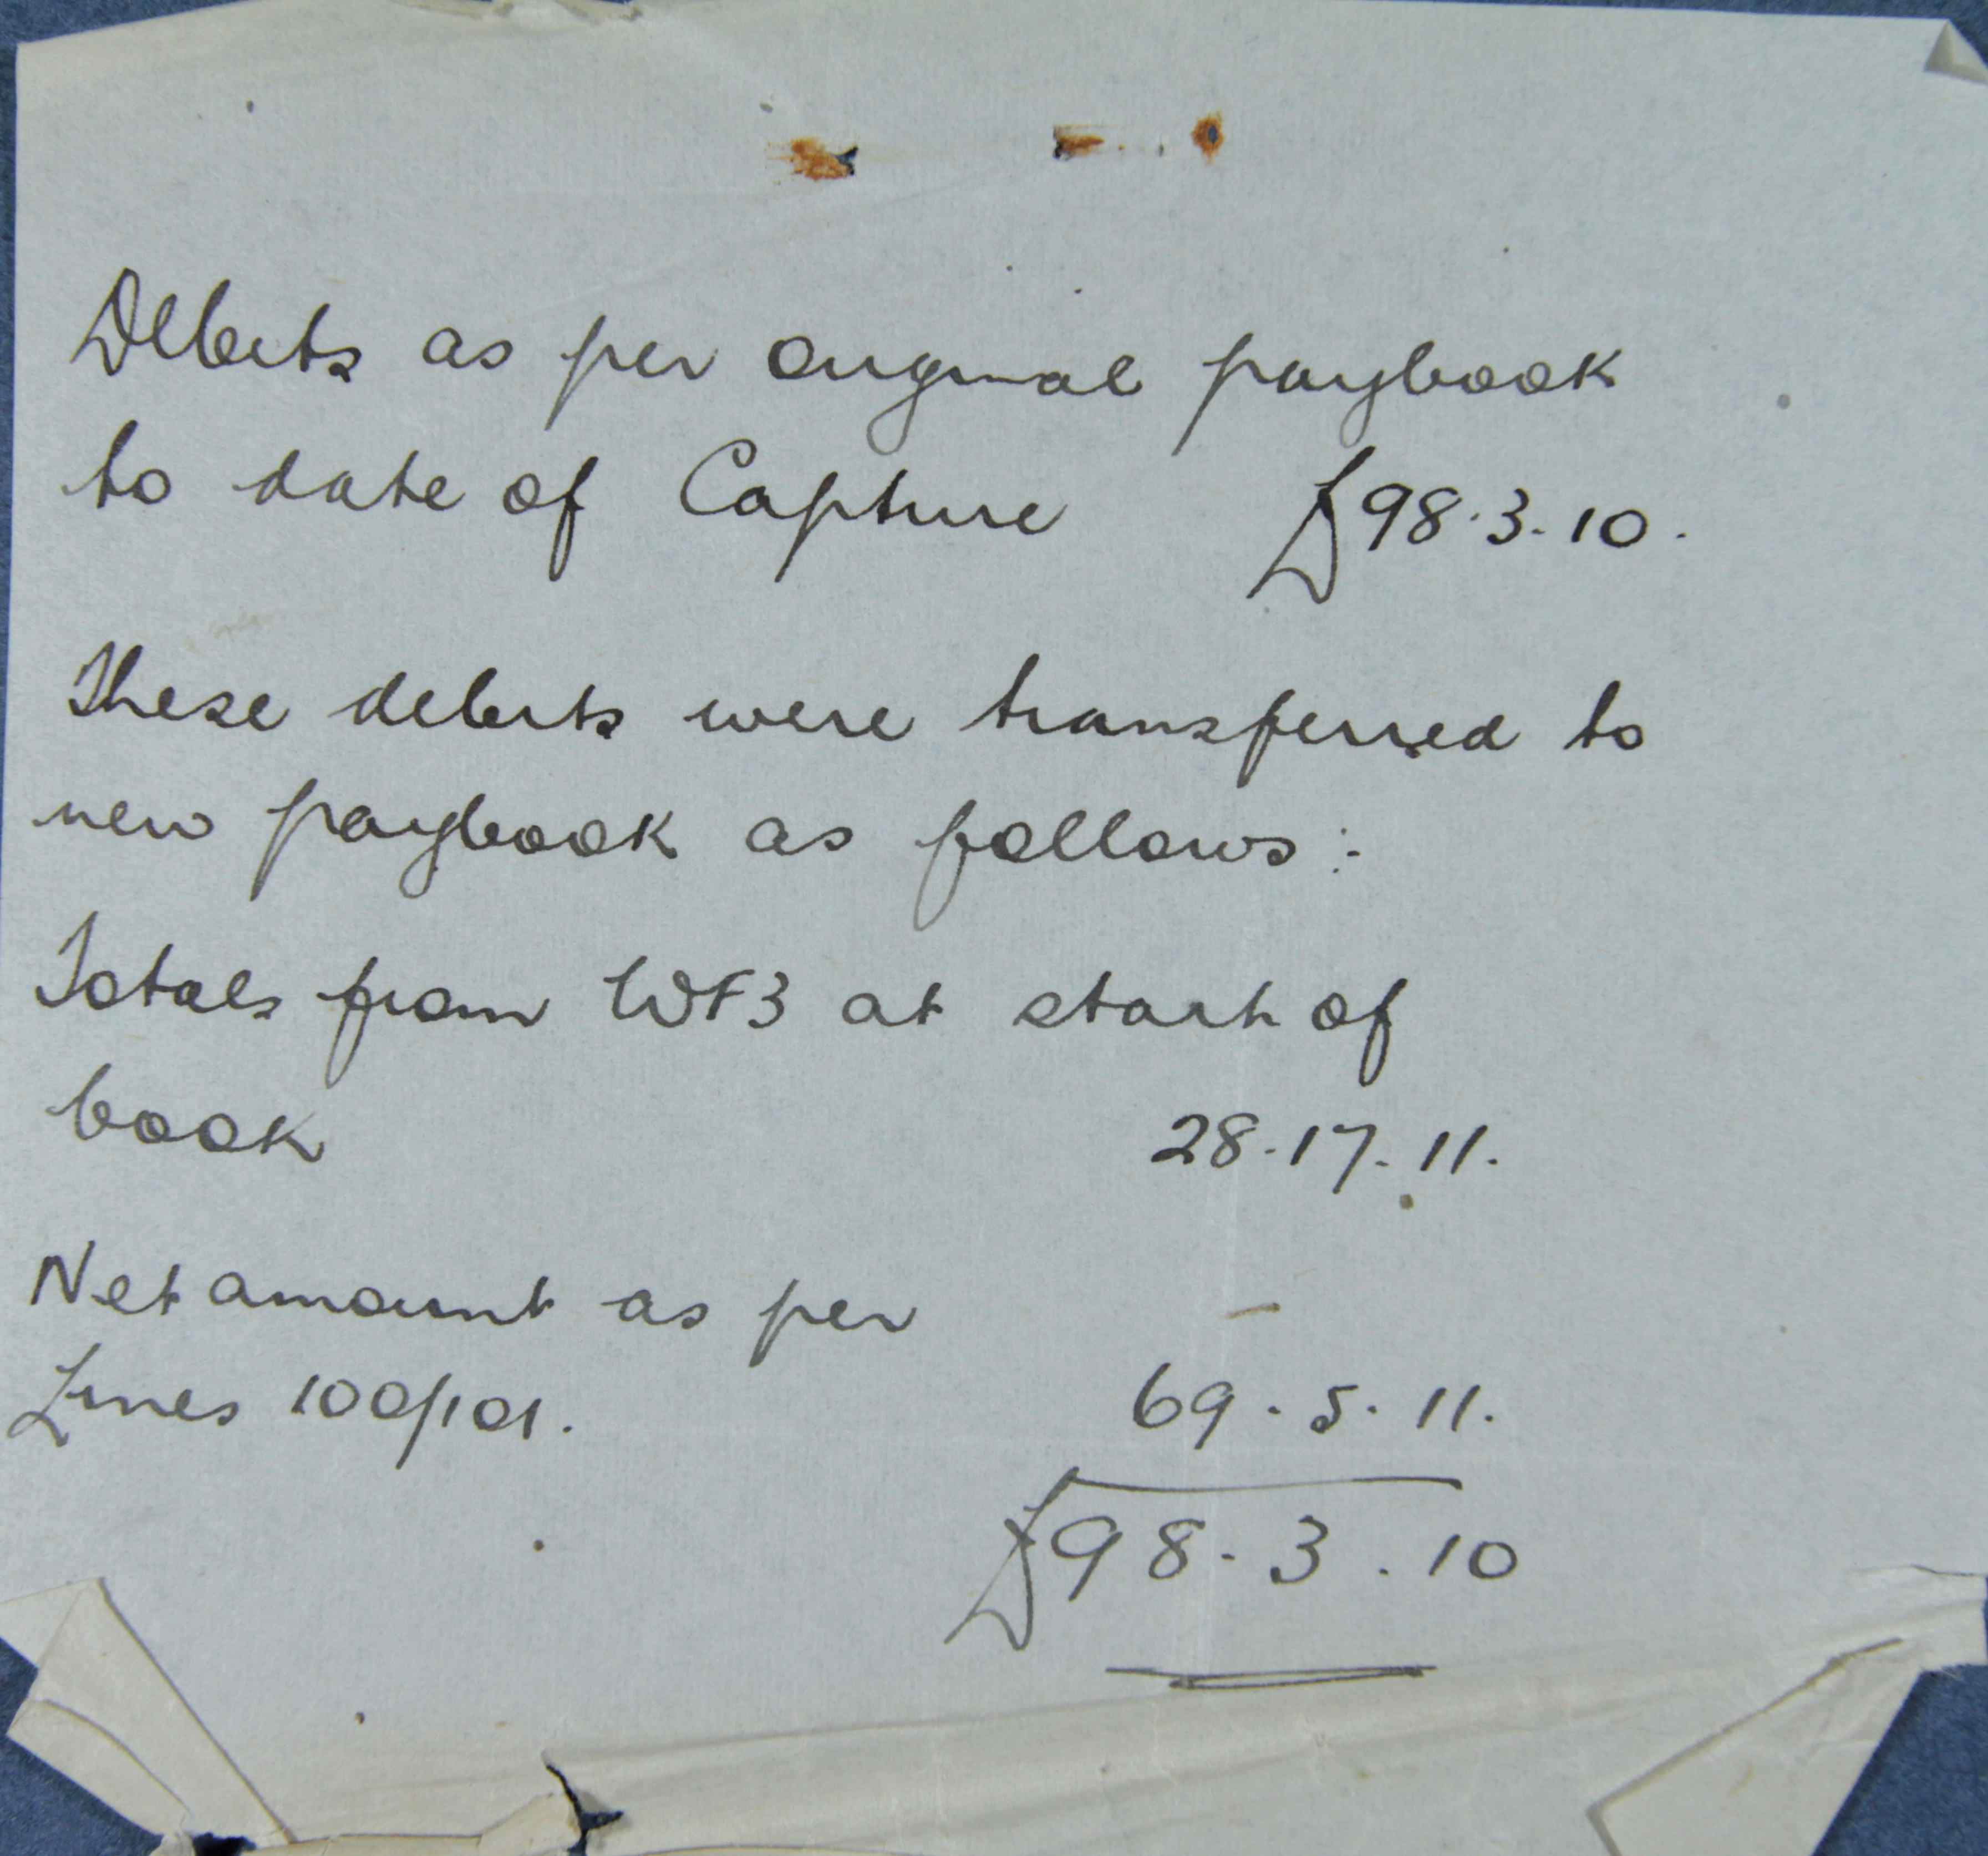 Debits as per original paybook
to date of Capture £98.3.10.
These debits were transferred to
new paybook as follows:
Totals from WF3 at start of
book 28.17.11.
Net amount as per
Lines 100/101. 69.5.11.
£98.3.10